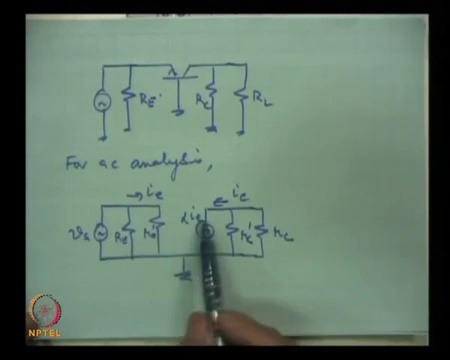 RE
RC
RL
For ac analysis,
→ ie
← ic
vs
RE
re'
αie
NPTEL